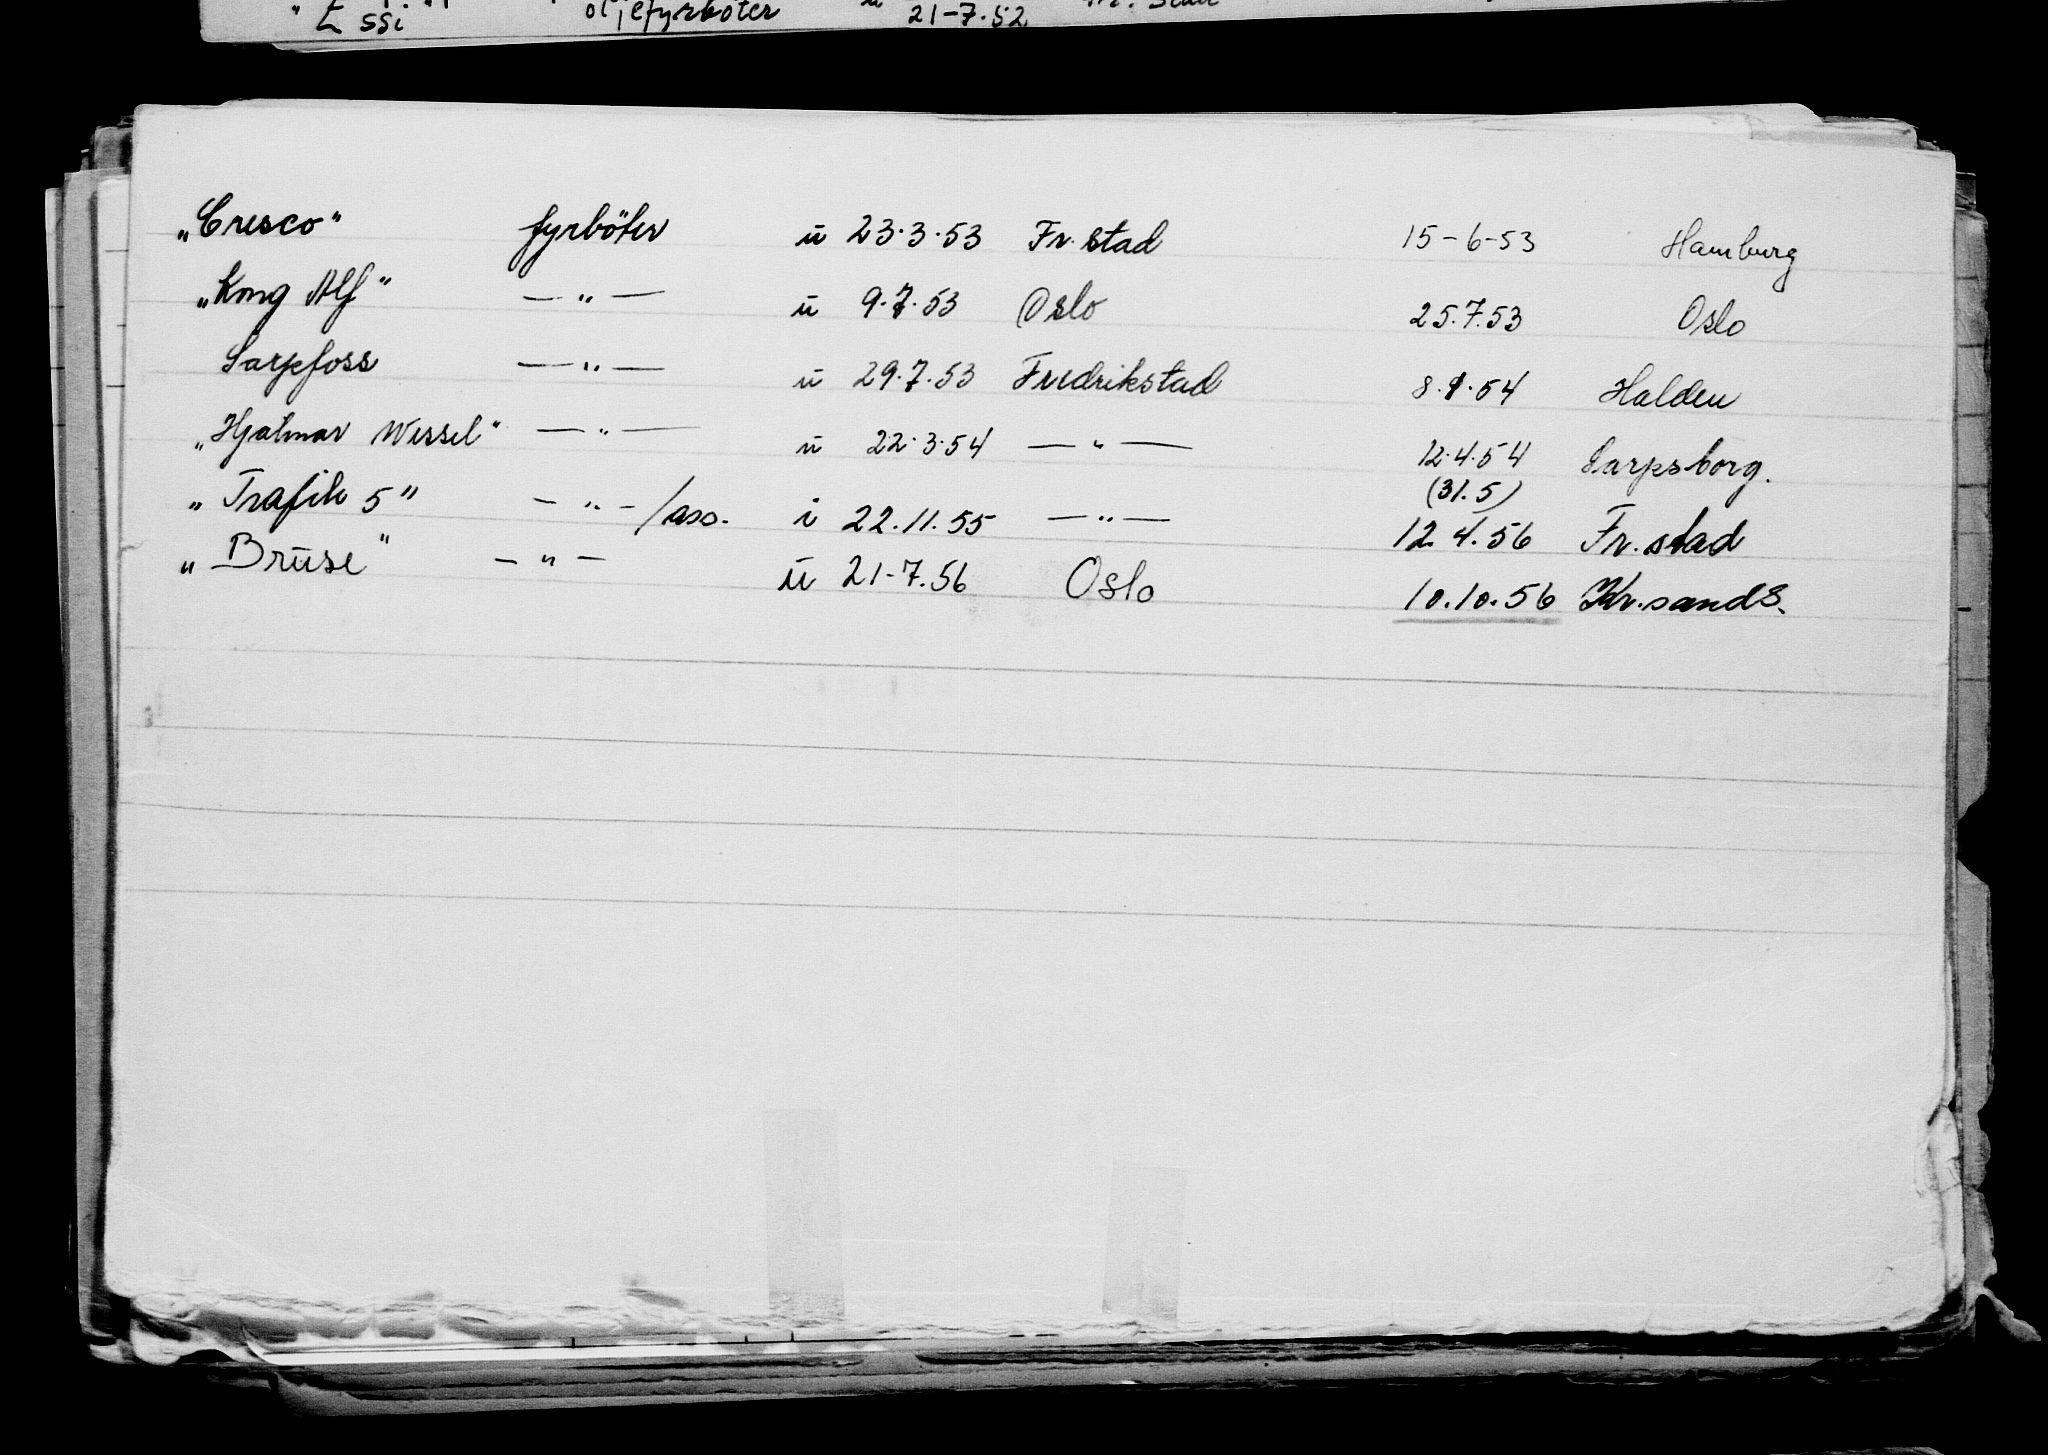 "Essi" oljefyrböter 21-7.52
„Cresco" fyrböter u 23.3.53 Fr. stad 15-6-53 Hamburg
„Kong Alf" — " — u 9.7.53 Oslo 25.7.53 Oslo
Sarpefoss — " — u 29.7.53 Fredrikstad 8.1.54 Halden
„Hjalmar Wessel" — " — u 22.3.54 — " — 12.4.54 Sarpsborg.
(31.5)
„Trafik 5" — " — /ass. i 22.11.55 — " — 12.4.56 Fr. stad
„Bruse" — " — u 21-7.56 Oslo 10.10.56 Kr.sands.